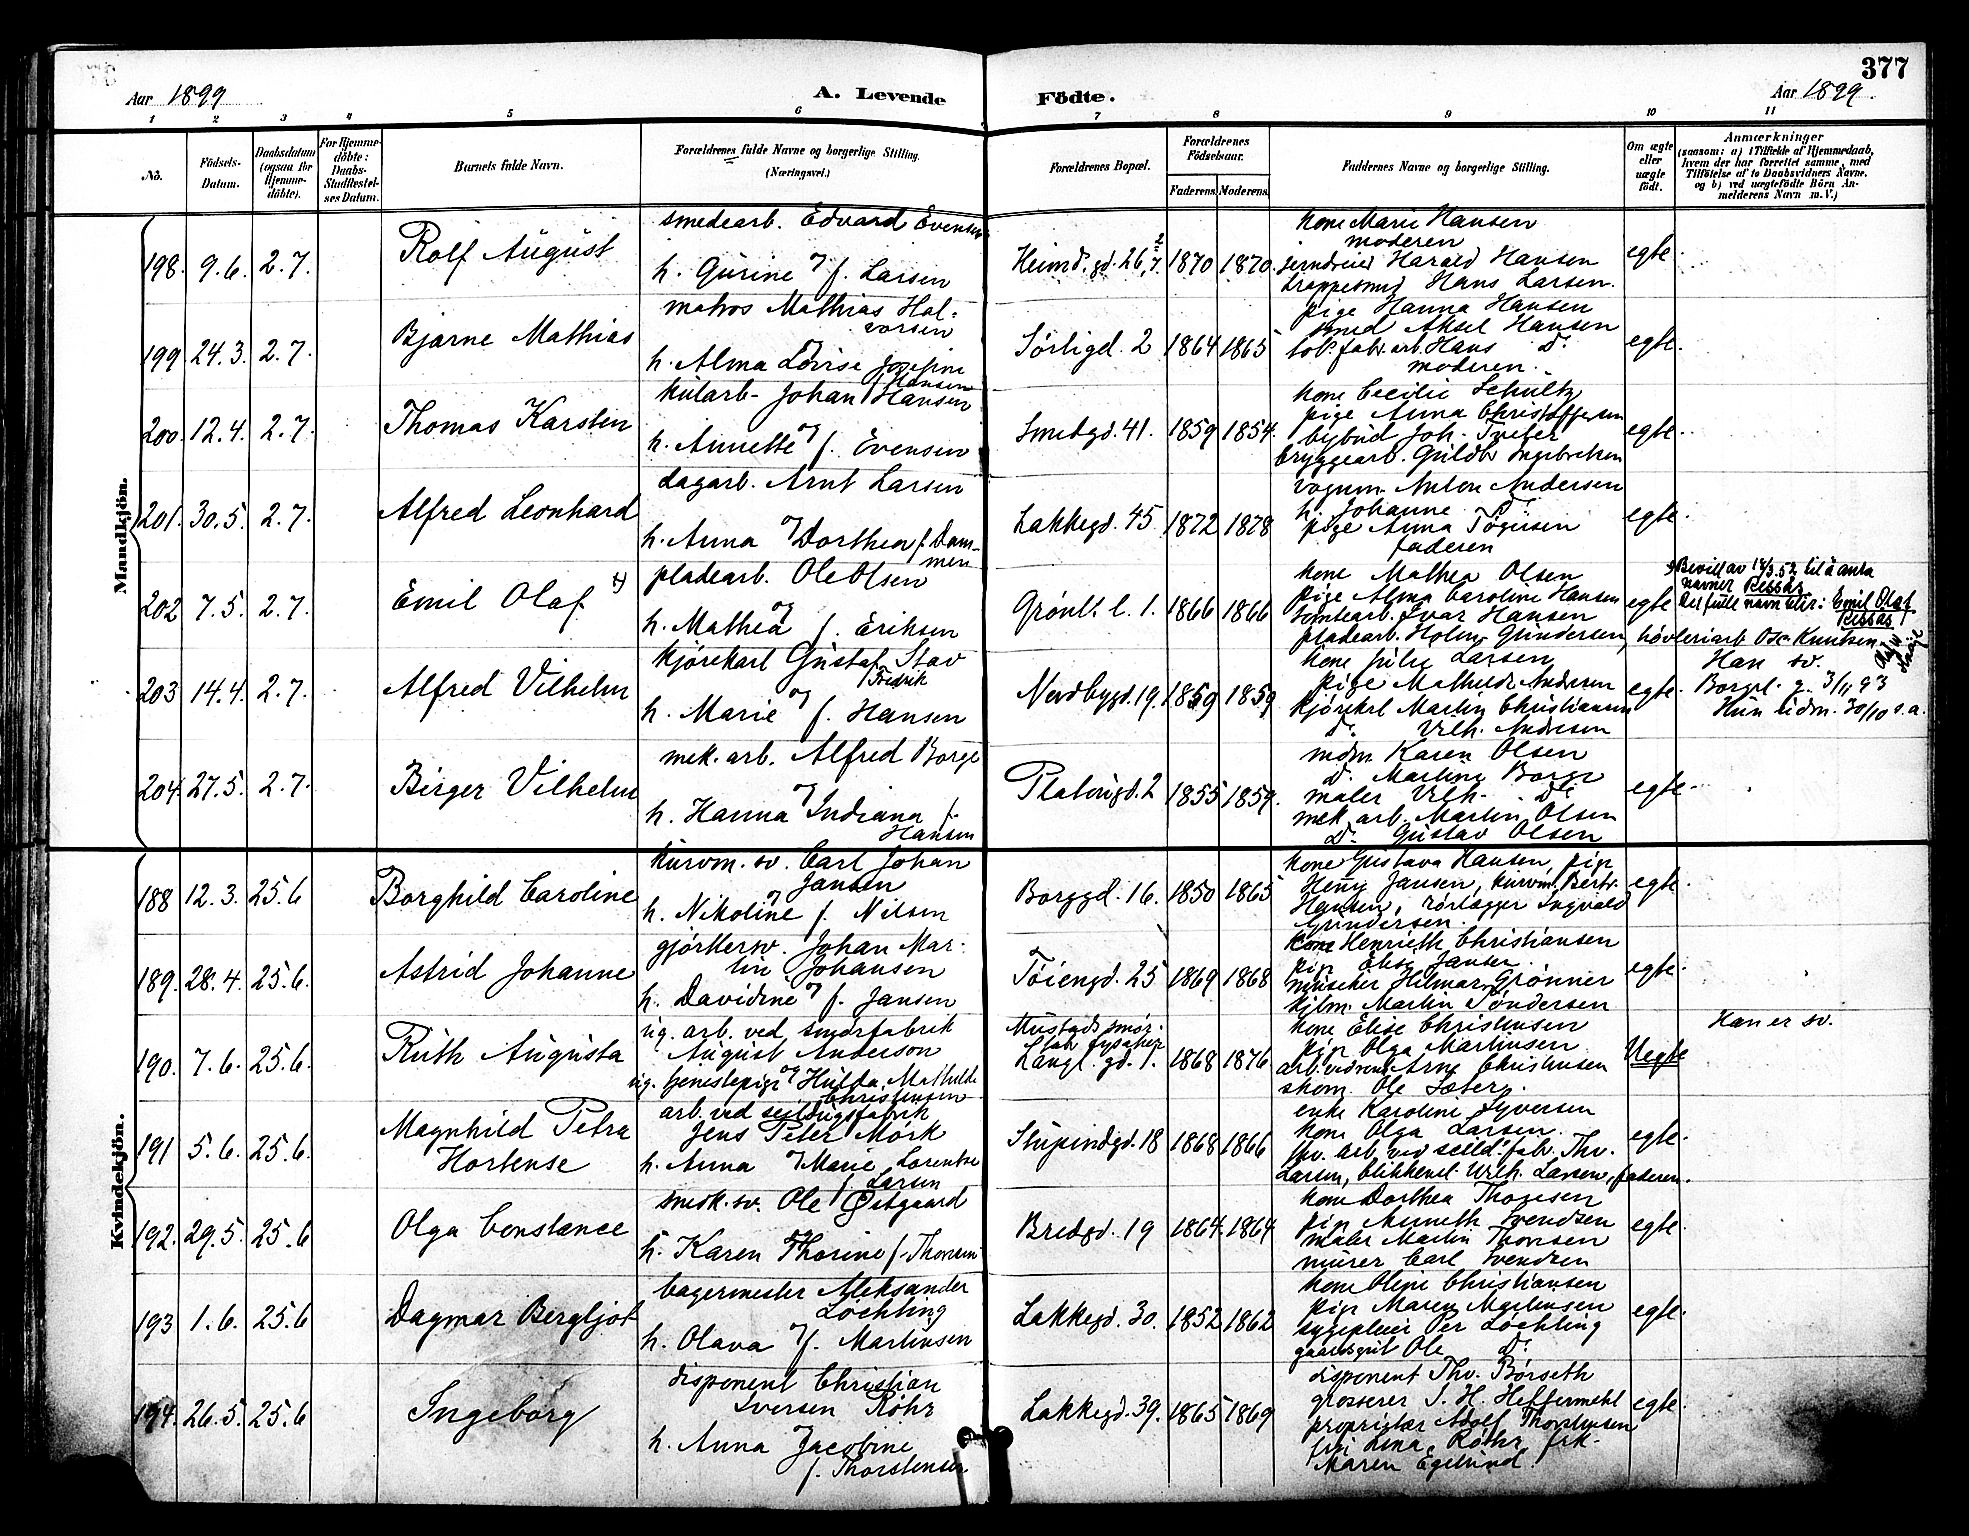 377
Aar 1899
A. Levende Födte.
Aar 1899.
1 2 3 4 5 6 7 8 9 10 11
No.
Födsels-Datum.
Daabsdatum (ogsaa for Hjemme-döbte).
For Hjemme-döbte: Daabs-Stadfæstel-ses Datum.
Barnets fulde Navn.
Forældrenes fulde Navne og borgerlige Stilling. (Næringsvei.)
Forældrenes Bopæl.
Forældrenes Födselsaar.
Faderens. Moderens.
Faddernes Navne og borgerlige Stilling.
Om ægte eller uægte födt.
Anmærkninger
(saasom: a) i Tilfælde af Hjemmedaab, hvem der har forrettet samme, med Tilföielse af to Daabsvidners Navne, og b) ved uægtefödte Börn An-melderens Navn m. V.)
Mandkjön.
198. 9.6. 2.7. Rolf August
smedearb. Edvard Evensen
og
h. Gurine f. Larsen
Heimd.gd. 26, 1870 1870.
kone Marie Hansen
moderen
jerndreier Harald Hansen
trappesmed Hans Larsen.
egte.
199 24.3. 2.7. Bjarne Mathias
matros Mathias Hal-
vorsen
h. Alma Lovise Josefine
Hansen
Sörligd. 2 1864 1865
pige Hanna Hansen
smed Aksel Hansen
tob. fabr. arb. Hans D.
moderen.
egte.
200. 12.4. 2.7. Thomas Karsten
kularb- Johan Hansen
og
h. Annette f. Evensen
Smedgd. 41. 1859 1854.
kone Cecilie Schultz
pige Anna Christoffersen
bybud Joh. Tveter
bryggearb. Guldbr Ingebretsen
egte.
201. 30.5. 2.7. Alfred Leonhard
dagarb. Arnt Larsen
og
h. Anna Dorthea f. Dam-
men
Lakkegd. 45 1872 1878
vognm. Anton Andersen
h. Johanne D.
pige Anna Tögersen
faderen
egte.
202 7.5. 2.7. Emil Olaf
pladearb. Ole Olsen
og
h. Mathea f. Eriksen
Grönl. l. 1. 1866 1866
kone Mathea Olsen
pige Alma Caroline Hansen
tomtearb. Ivar Hansen
pladearb. Holm Gundersen, hövleriarb Osc. Knutsen.
egte
Bevill av 18/3.52 til å anta
navnet Ressås
Det fulle navn blir: Emil Olaf
Ressås
203 14.4. 2.7. Alfred Vilhelm
kjörekarl Gustaf Stav
Fredrik
og
h. Marie f. Hansen
Nordbygd. 19. 1859 1859
kone Julie Larsen
pige Mathilde Andersen
kjörekrl Martin Christiansen
D. Vilh. Andresen
egte.
Han sv.
Borgerl. g. 3/11 93
Hun udm. 30/10 s.a.
204. 27.5. 2.7. Birger Vilhelm
mek. arb. Alfred Borge
og
h. Hanna Indiana f.
Hansen
Platougd. 2 1855 1859.
madm Karen Olsen
D. Martine Borge
maler Vilh. D.
mek. arb. Martin Olsen
D. Gustav Olsen
egte.
Kvindekjön.
188 12.3. 25.6 Borghild Caroline
kurvm. sv. Carl Johan
Jansen
og
h. Nikoline f. Nilsen
Borggd. 16. 1850 1865
kone Gustava Hansen, pige
Henny Jansen, kurvm. Bertr.
Hansen, rörlægger Ingvald
Gundersen.
egte.
189. 28.4. 25.6. Astrid Johanne
gjörtlersv. Johan Mar-
tin Johansen
og
h. Davidine f. Jansen
Töiengd. 25 1869 1868
kone Henriette Christiansen
pige Elise Jansen.
musiker Hilmar Grönner
kjbm. Martin Töndersen
egte.
190. 7.6. 25.6. Ruth Augusta
ug. arb. ved smörfabrik
August Anderson
og
ug. tjenestepige Hulda Mathilde
Christensen
Mustads smör-
Langl. gd. 1. 1868 1876
kone Elise Christensen
pige Olga Martinsen
arb. Arne Christensen
skom. Ole Sæter.
Uegte
Han er sv.
191 5.6. 25.6. Magnhild Petra
Hortense
arb. ved seildugsfabrik
Jens Peter Mörk
og
h. Anna Marie Lorentse
f. Larsen
Stupindgd. 18 1868 1866
enke Karoline Syversen
kone Olga Larsen.
fhv. arb. ved seild. fabr. Thv.
Larsen, blikkensl. Vilh. Larsen, faderen.
egte.
192. 29.5. 25.6 Olga Constance
snedk. sv. Ole Østgaard
h. Karen Thorine f. Thoresen
Bredgd. 19 1864. 1864
kone Dorthea Thoresen
pige Anneth Svendsen
maler Martin Thoresen
murer Carl Svendsen
egte.
193 1.6. 25.6 Dagmar Bergljot
bagermester Aleksander
Lochting
og
h. Olava f. Martinsen
Lakkegd. 30. 1852 1862
kone Oline Christiansen
pige Maren Martinsen
sygepleier Per Lochting
gaardsgut Ole D.
egte.
194. 26.5. 25.6 Ingeborg
disponent Christian
Iversen Röhr
h. Anna Jacobine
f. Thorstensen
Lakkegd. 39. 1865 1869
disponent Thv. Börseth
grosserer S. H. Heffermehl
proprietær Adolf Thorstensen
frk Lina Röhr, frk.
Maren Egelund.
egte.